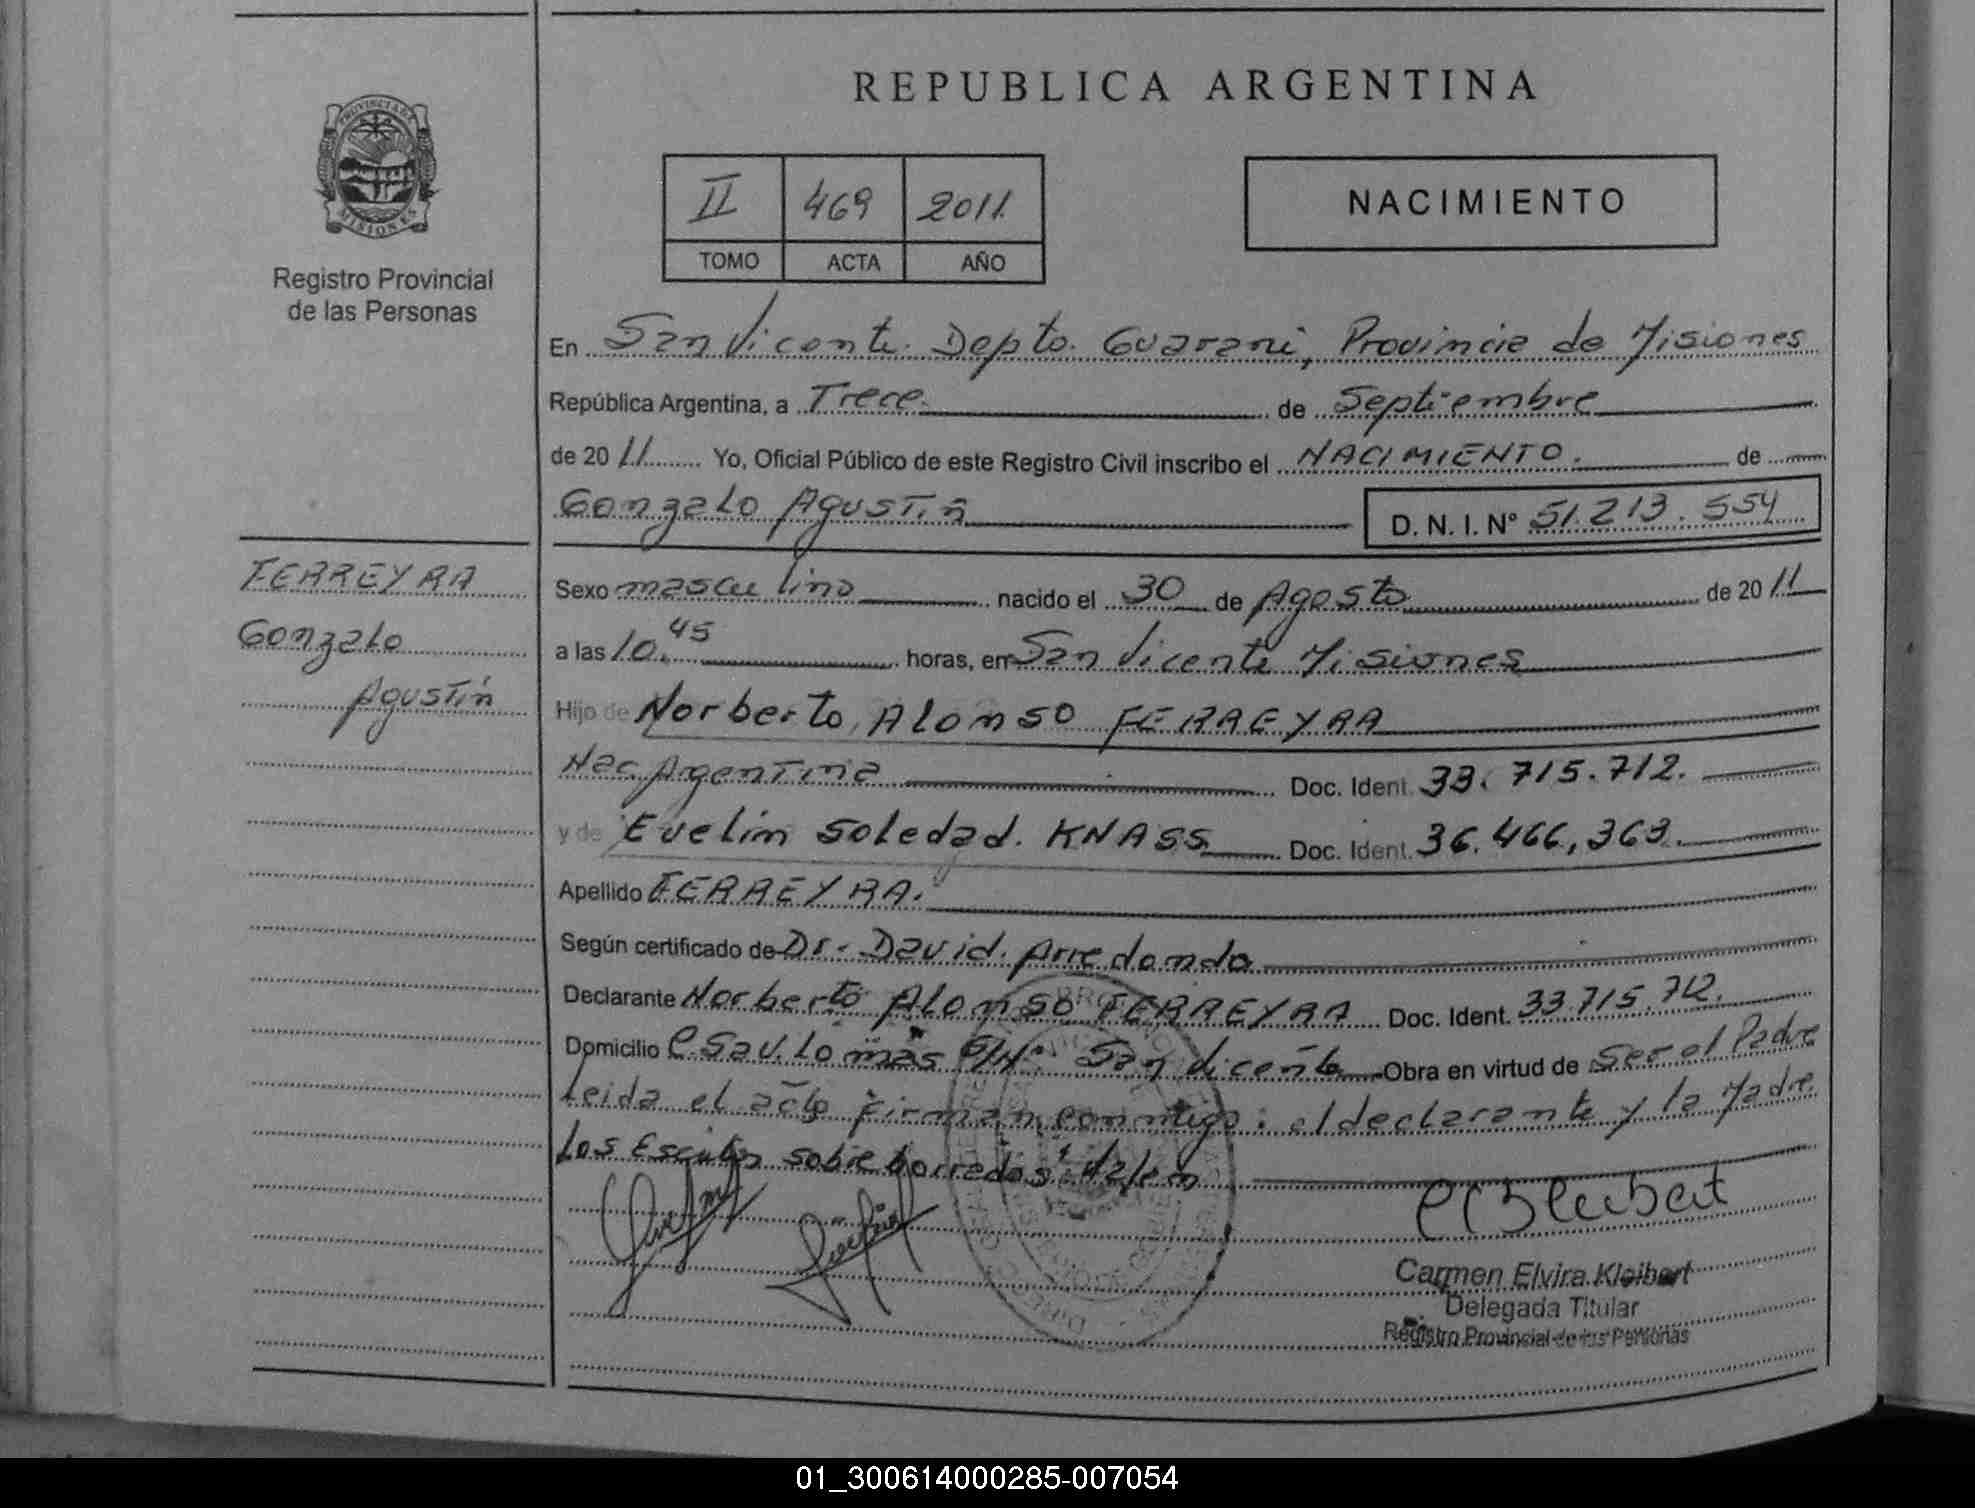 REPUBLICA ARGENTINA
PROVINCIA DE
MISIONES
Registro Provincial
de las Personas
II 469 2011
TOMO ACTA AÑO
NACIMIENTO
En San Vicente. Depto. Guarani, Provincia de Misiones
República Argentina, a Trece de Septiembre
de 2011 Yo, Oficial Público de este Registro Civil inscribo el NACIMIENTO. de
Gonzalo Agustin D. N. I. N° 51.213.554
FERREYRA
Gonzalo
Agustín
Sexo masculino nacido el 30 de Agosto de 2011
a las 10.45 horas, en San Vicente Misiones
Hijo de Norberto Alonso FERREYRA
Nac. Argentina Doc. Ident. 33.715.712.
y de Evelin Soledad. KNASS Doc. Ident. 36.466,363.
Apellido FERREYRA.
Según certificado de Dr. David. Arredondo
Declarante Norberto Alonso FERREYRA Doc. Ident. 33.715.712.
Domicilio C. Sav. Lo mas S/Nº San Vicente Obra en virtud de Ser el Padre
Leida el acto firman conmigo: el declarante y la Madre
Los sobre borrados
Carmen Elvira Kleibert
Delegada Titular
Registro Provincial de las Personas
01_300614000285-007054